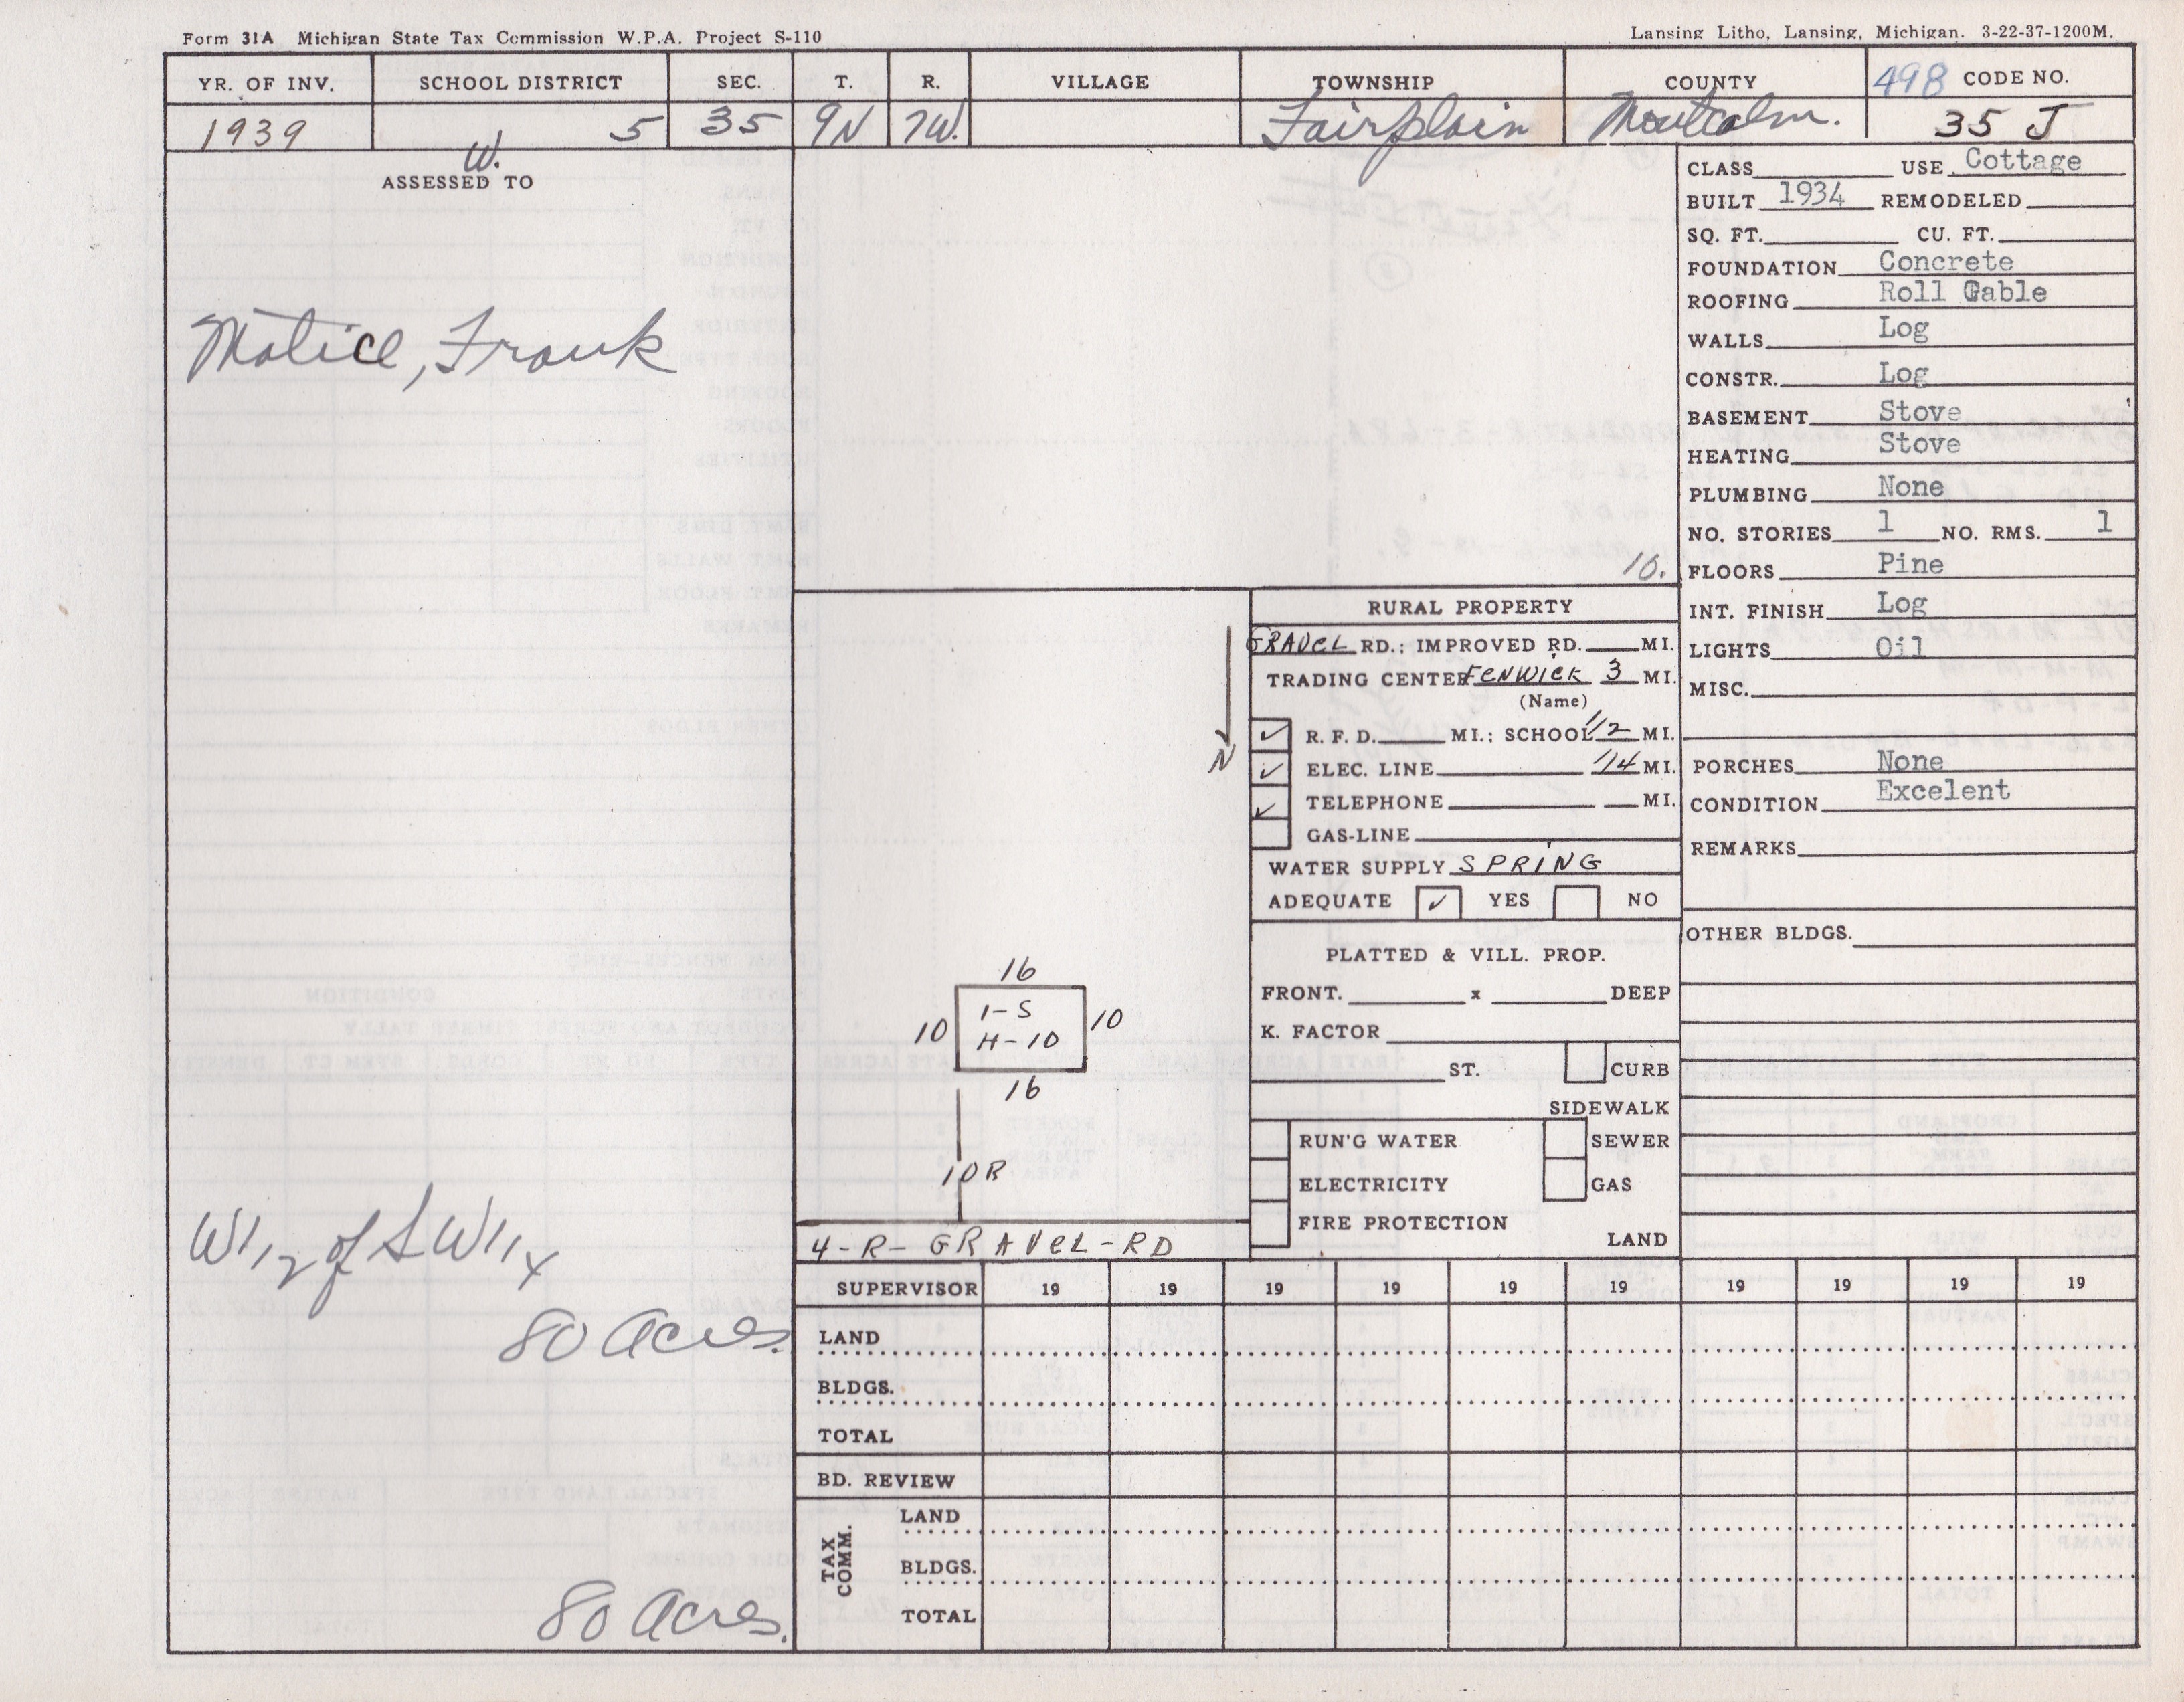 Form 31A Michigan State Tax Commission W.P.A. Project S-110
Lansing Litho, Lansing, Michigan. 3-22-37-1200M.
YR. OF INV. SCHOOL DISTRICT SEC. T. R. VILLAGE TOWNSHIP COUNTY 498 CODE NO.
1939 5 35 9N 7W. Fairplain Montcalm. 35 J
W.
ASSESSED TO
Matice, Frank
W1/2 of SW1/4
80 acres.
80 acres.
10.
CLASS USE Cottage
BUILT 1934 REMODELED
SQ. FT. CU. FT.
FOUNDATION Concrete
ROOFING Roll Gable
WALLS Log
CONSTR. Log
BASEMENT Stove
HEATING Stove
PLUMBING None
NO. STORIES 1 NO. RMS. 1
FLOORS Pine
INT. FINISH Log
LIGHTS Oil
MISC.
PORCHES None
CONDITION Excelent
REMARKS
OTHER BLDGS.
RURAL PROPERTY
GRAVEL RD.; IMPROVED RD. MI.
TRADING CENTER FENWICK 3 MI.
(Name)
✓ R. F. D. MI.; SCHOOL 1/2 MI.
✓ ELEC. LINE 1/4 MI.
✓ TELEPHONE MI.
GAS-LINE
WATER SUPPLY SPRING
ADEQUATE ✓ YES NO
PLATTED & VILL. PROP.
FRONT. x DEEP
K. FACTOR
ST. CURB
SIDEWALK
RUN'G WATER SEWER
ELECTRICITY GAS
FIRE PROTECTION
LAND
N
16
10 1-S 10
H-10
16
10R
4-R-GRAVEL-RD
SUPERVISOR 19 19 19 19 19 19 19 19 19 19
LAND
BLDGS.
TOTAL
BD. REVIEW
TAX COMM.
LAND
BLDGS.
TOTAL